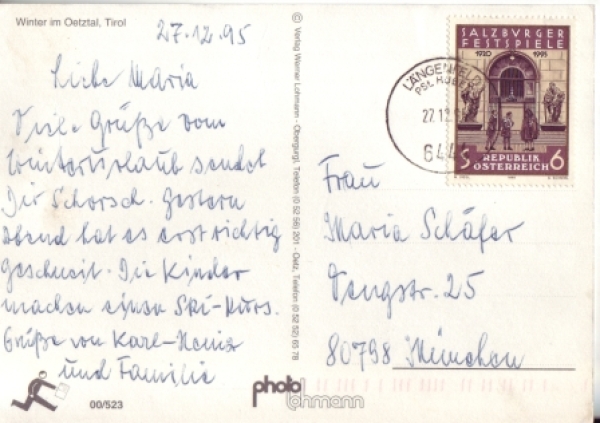 Winter im Oetztal, Tirol
27.12.95
Liebe Maria
Viele Grüße vom
Winterurlaub sendet
Dir Schorsch. Gestern
Abend hat es erst richtig
geschneit. Die Kinder
machen einen Ski-Kurs.
Grüße von Karl-Heinz
und Familie
00/523
© Verlag Werner Lohmann - Obergurgl, Telefon (0 52 56) 201 - Oetz, Telefon (0 52 52) 65 78
photo
lohmann
LÄNGENFELD
27.12.
644
SALZBURGER
FESTSPIELE
1920 1995
S REPUBLIK 6
ÖSTERREICH
Frau
Maria Schäfer
Vengstr. 25
80798 München